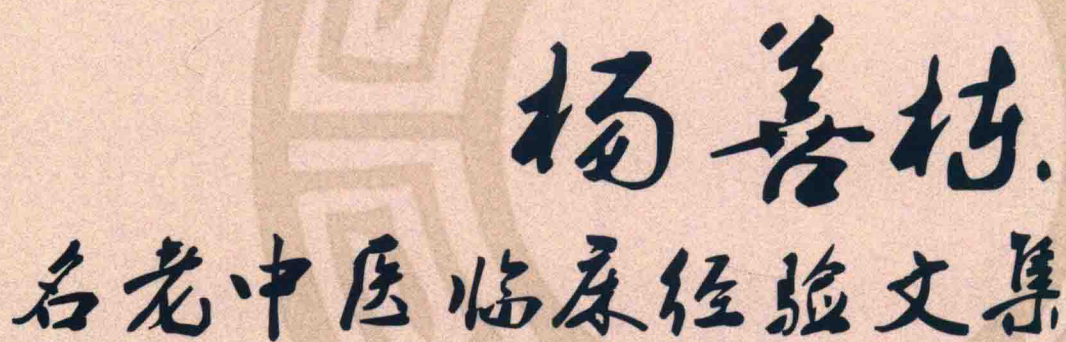 杨善栋
名老中医临床经验文集